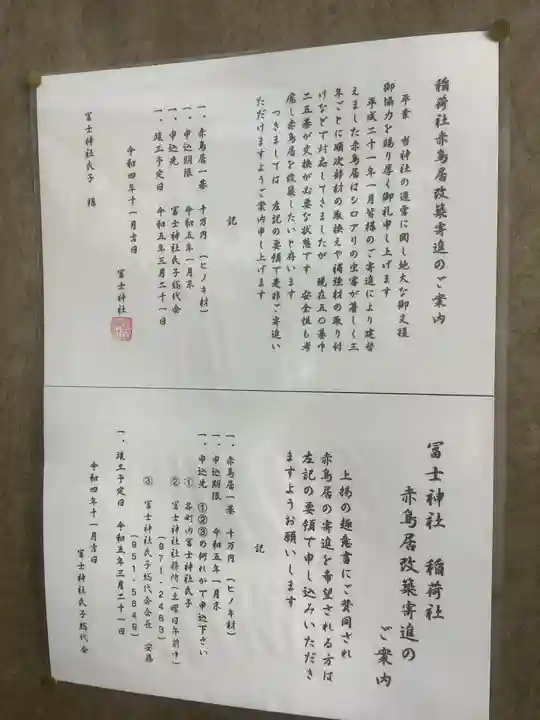 稲荷社赤鳥居改築寄進のご案内
平素 当神社の運営に関し絶大な御支援
御協力を賜り厚く御礼申し上げます
平成二十一年一月皆様のご寄進により建替
えました赤鳥居はシロアリの虫害が著しく三
年ごとに順次部材の取換えや補強材の取り付
けなどで対応してきましたが 現在五〇基中
二五基が交換が必要な状態です 安全性も考
慮し赤鳥居を改築したいと存います
つきましては 左記の要領で是非ご寄進い
ただけますようご案内申し上げます
記
一、赤鳥居一基 十万円 (ヒノキ材)
一、申込期限 令和五年一月末
一、申込先 冨士神社氏子総代会
一、竣工予定日 令和五年三月二十一日
令和四年十一月吉日
冨士神社
冨士神社氏子 様
冨士神社 稲荷社
赤鳥居改築寄進の
ご案内
上掲の趣意書にご賛同され
赤鳥居の寄進を希望される方は
左記の要領で申し込みいただき
ますようお願いします
記
一、赤鳥居一基 十万円 (ヒノキ材)
一、申込期限 令和五年一月末
一、申込先 ①②③の何れかで申込下さい
① 各町内冨士神社氏子
② 冨士神社社務所(土曜日午前中)
(971-2483)
③ 冨士神社氏子総代会会長 安藤
(951-5849)
一、竣工予定日 令和五年三月二十一日
令和四年十一月吉日
冨士神社氏子総代会